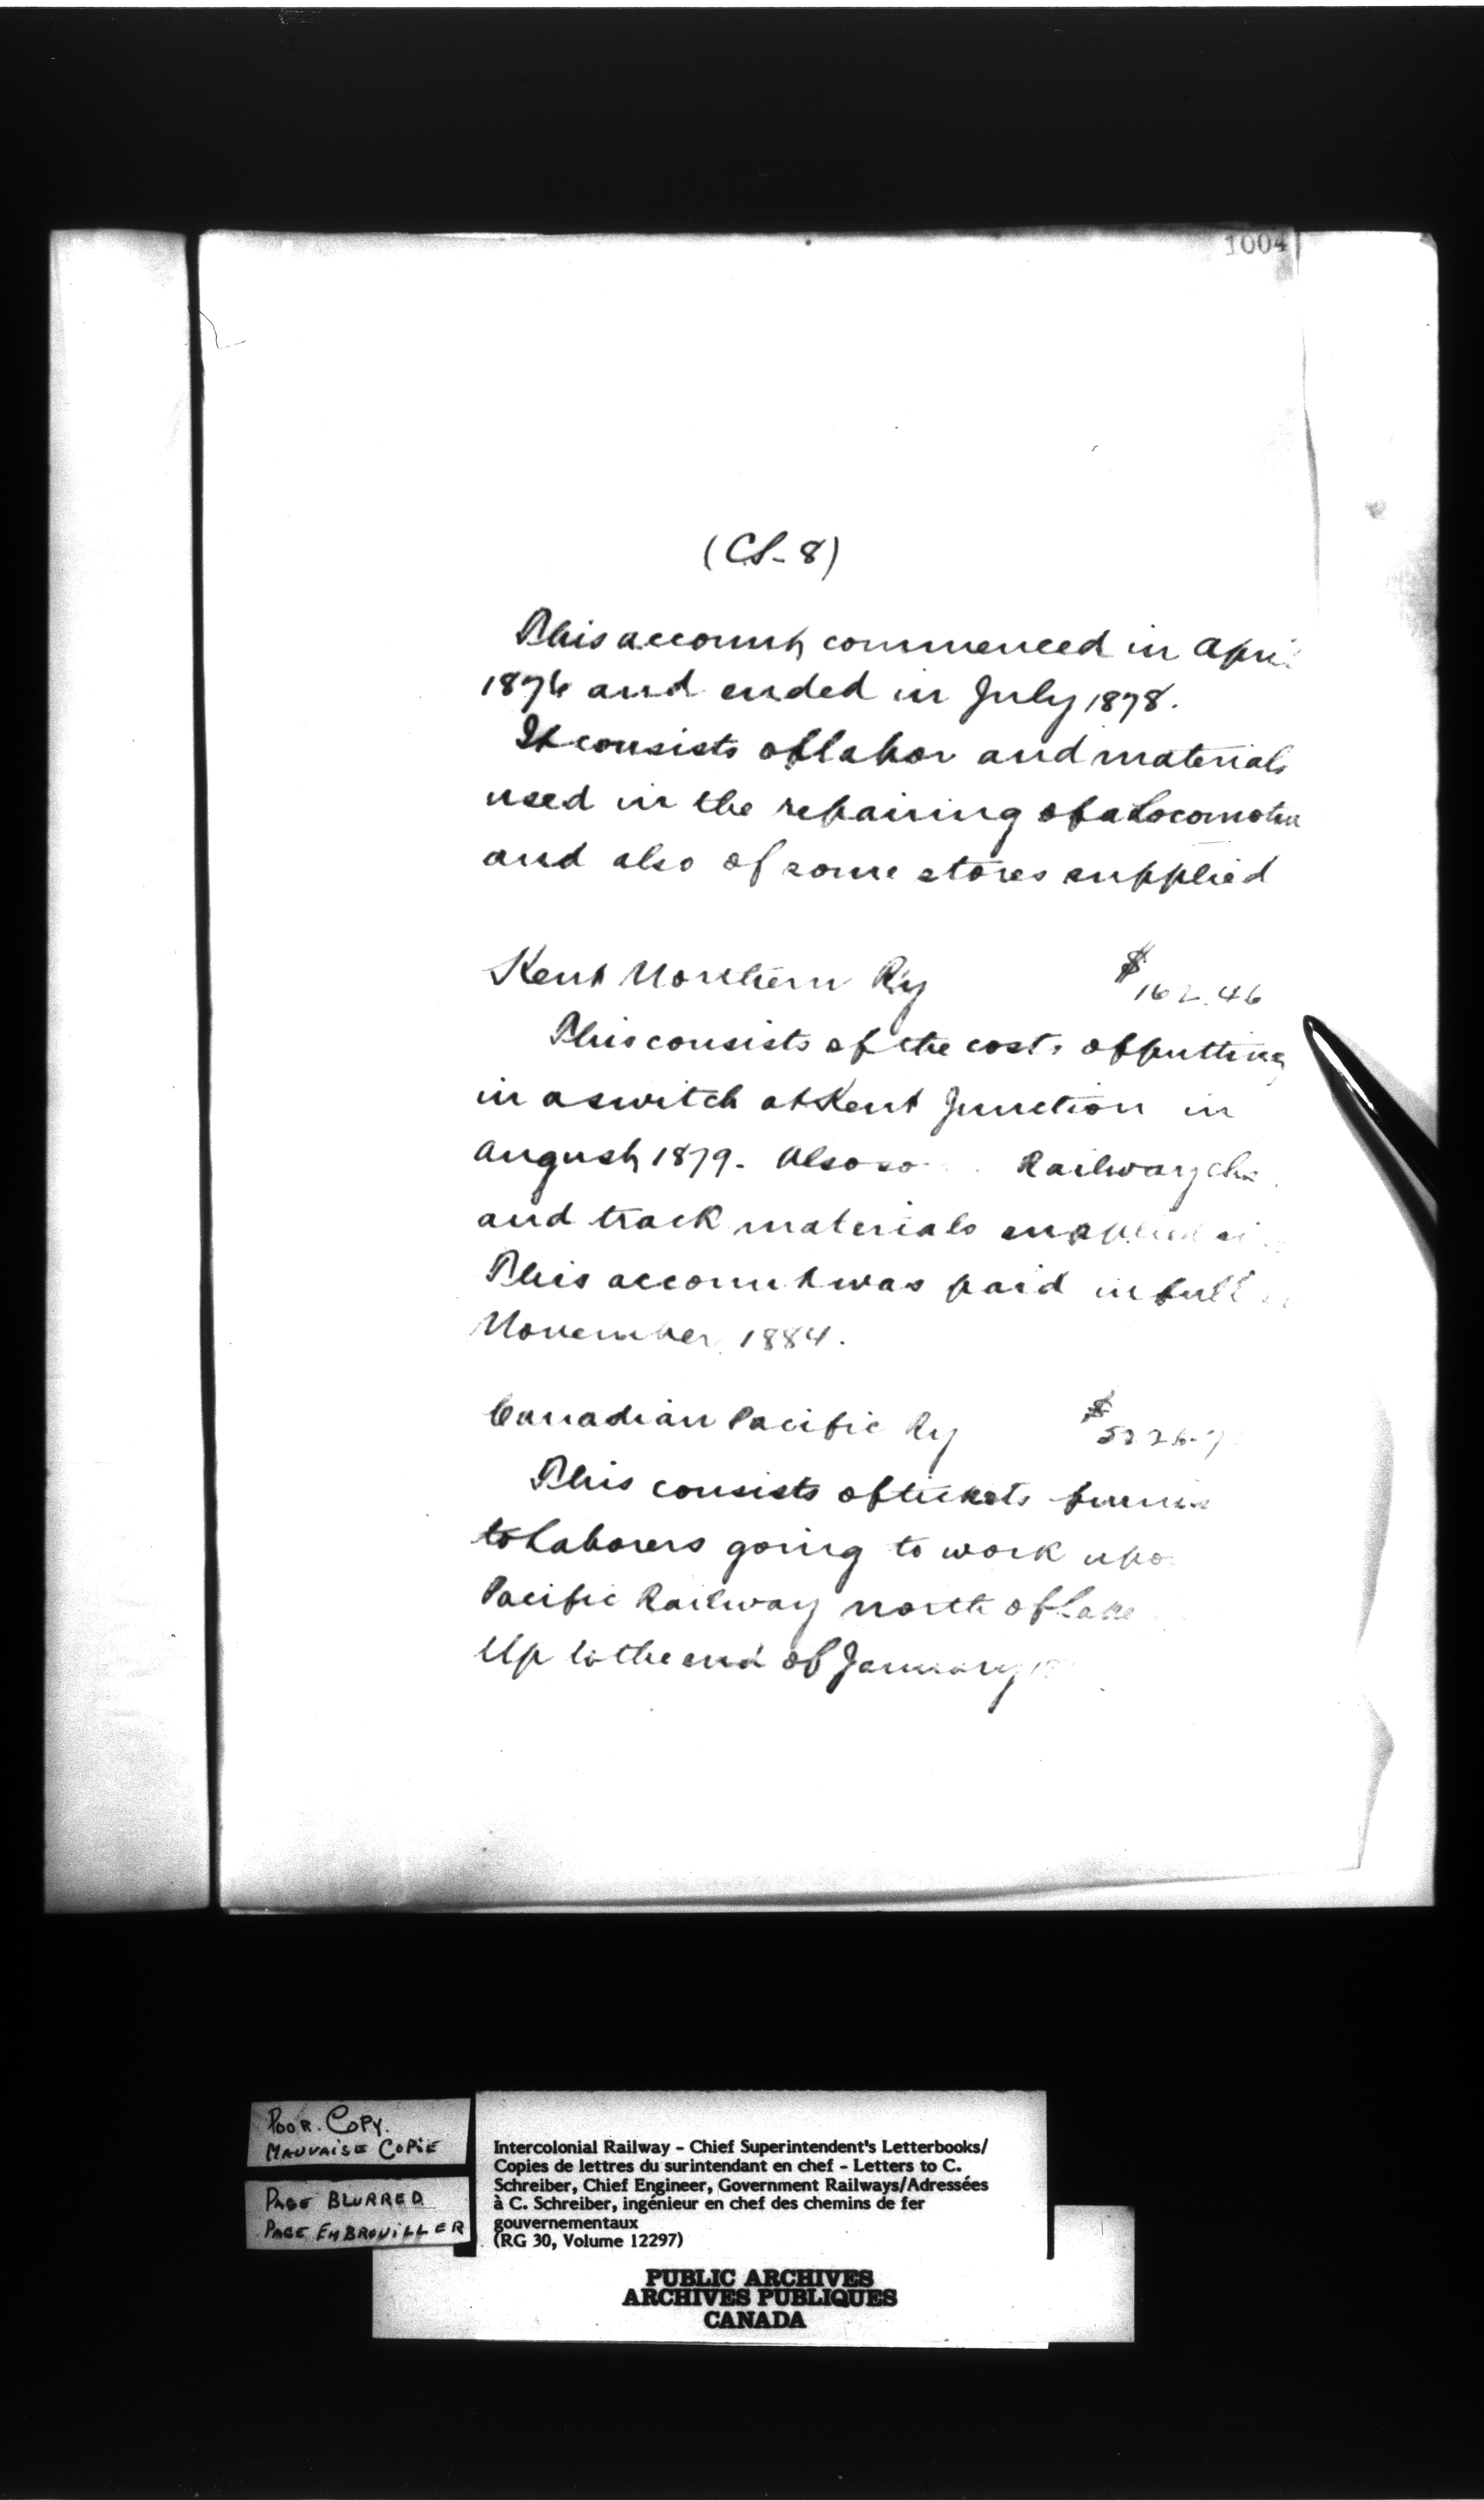 1004
(CS-8)
This account commenced in April
1876 and ended in July 1878.
It consists of labor and materials
used in the repairing of a Locomotive
and also of some stores supplied
Kent Northern Ry $162.46
This consists of the cost of putting
in a switch at Kent Junction in
August 1879. Also Railway
and track materials supplied
This account was paid in full
November 1884.
Canadian Pacific Ry $
This consists of tickets
to Laborers going to work upo
Pacific Railway north of Lake
Up to the end of January
POOR. COPY.
MAUVAISE COPIE
PAGE BLURRED
PAGE EMBROUILLER
Intercolonial Railway - Chief Superintendent's Letterbooks/
Copies de lettres du surintendant en chef - Letters to C.
Schreiber, Chief Engineer, Government Railways/Adressées
à C. Schreiber, ingénieur en chef des chemins de fer
gouvernementaux
(RG 30, Volume 12297)
PUBLIC ARCHIVES
ARCHIVES PUBLIQUES
CANADA